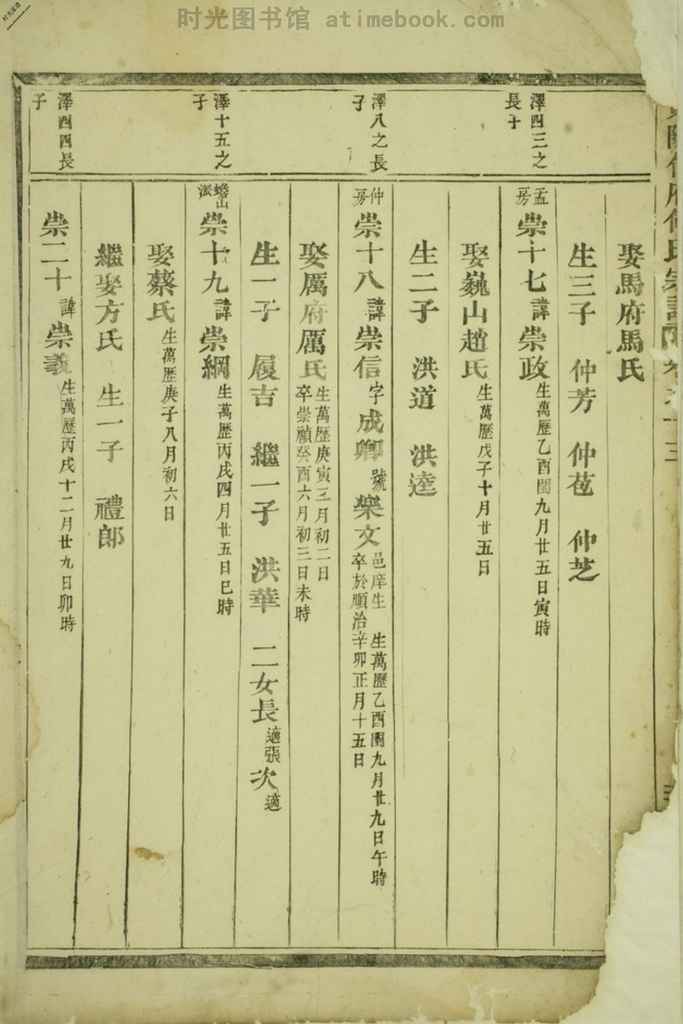 时光图书馆 atimebook.com
何氏宗譜
娶馬府馬氏
生三子 仲芳 仲苞 仲芝
澤四三之
長子
孟房
崇十七諱崇政生萬歷乙酉閏九月廿五日寅時
娶巍山趙氏生萬歷戊子十月廿五日
生二子 洪道 洪逵
澤八之長
子
仲房
崇十八諱崇信字成卿號樂文邑庠生 生萬歷乙酉閏九月廿九日午時
卒於順治辛卯正月十五日
娶厲府厲氏生萬歷庚寅三月初二日
卒崇禎癸酉六月初三日未時
生一子 履吉 繼一子 洪華 二女長適張次適
澤十五之
子
蟠山派
崇十九諱崇綱生萬歷丙戌四月廿五日巳時
娶蔡氏生萬歷庚子八月初六日
繼娶方氏 生一子 禮郎
澤四四長
子
崇二十諱崇義生萬歷丙戌十二月廿九日卯時